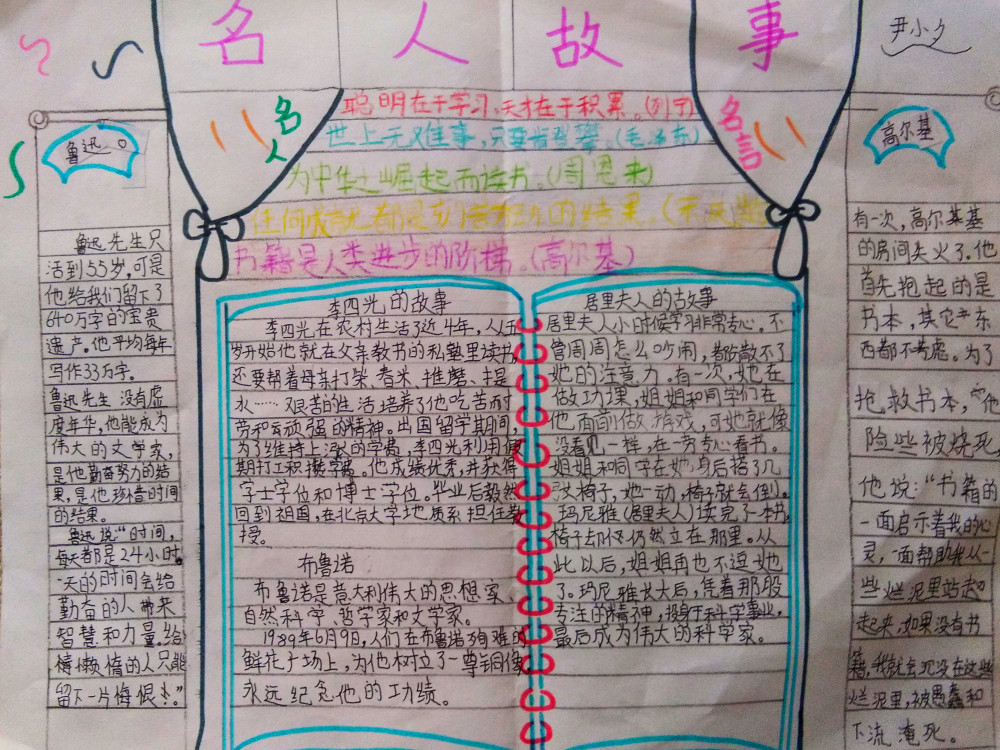 名人故事
尹小夕
名人
名言
聪明在于学习,天才在于积累。(列宁)
世上无难事,只要肯登攀。(毛泽东)
为中华之崛起而读书。(周恩来)
任何成就都是
的结果。
书籍是人类进步的阶梯。(高尔基)
鲁迅
鲁迅先生只
活到55岁,可是
他给我们留下了
640万字的宝贵
遗产。他平均每年
写作33万字。
鲁迅先生没有虚
度年华,他能成为
伟大的文学家,
是他勤奋努力的结
果,是他珍惜时间
的结果。
鲁迅说:“时间,
每天都是24小时。
一天的时间会给
勤奋的人带来
智慧和力量,给
懒惰的人只能
留下一片悔恨!”
李四光的故事
李四光在农村生活了近4年,从五
岁开始他就在父亲教书的私塾里读书,
还要帮着母亲打柴、舂米、推磨、提
水……艰苦的生活培养了他吃苦耐
劳和顽强的精神。出国留学期间,
为了维持上涨的学费,李四光利用假
期打工积攒学费。他成绩优秀,并获得
学士学位和博士学位。毕业后毅然
回到祖国,在北京大学地质系担任教
授。
布鲁诺
布鲁诺是意大利伟大的思想家、
自然科学、哲学家和文学家。
1989年6月9日,人们在布鲁诺殉难的
鲜花广场上,为他树立了一尊铜像
永远纪念他的功绩。
居里夫人的故事
居里夫人小时候学习非常专心。不
管周周怎么吵闹,都分散不了
她的注意力。有一次,她在
做功课,姐姐和同学们在
他面前做游戏,可她就像
没看见一样,在一旁专心看书。
姐姐和同学在她身后搭了几
张椅子,她一动,椅子就会倒。
玛尼雅(居里夫人)读完了一本书,
椅子却仍然立在那里。从
此以后,姐姐再也不逗她
了。玛尼雅长大后,凭着那段
专注的精神,投身于科学事业,
最后成为伟大的科学家。
高尔基
有一次,高尔基基
的房间失火了。他
首先抱起的是
书本,其它东
西都不考虑。为了
抢救书本,他
险些被烧死,
他说:“书籍的
一面启示着我的心
灵,一面帮助我从一
些烂泥里站起
起来,如果没有书
籍,我就会沉没在这些
烂泥里,被愚蠢和
下流淹死。